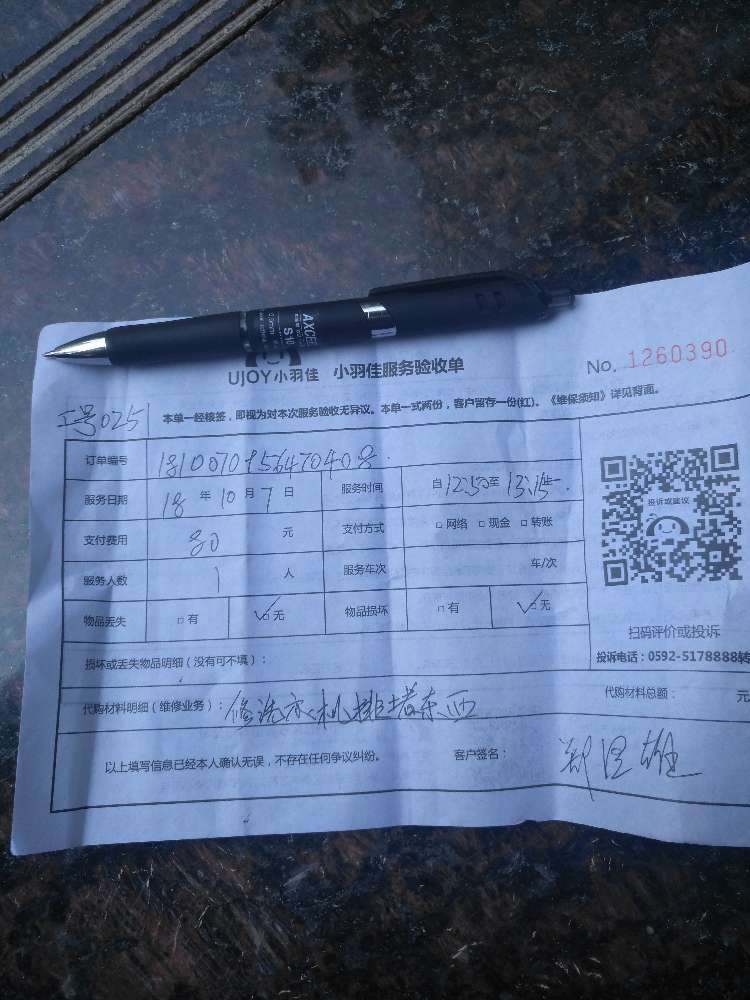 AXCEL
S10
UJOY小羽佳 小羽佳服务验收单
No. 1260390
工号025
本单一经核签，即视为对本次服务验收无异议。本单一式两份，客户留存一份(红)。《维保须知》详见背面。
订单编号
服务日期 18 年 10 月 7 日 服务时间 自 12:50 至 13:15
支付费用 80 元 支付方式 □ 网络 □ 现金 □ 转账
服务人数 1 人 服务车次 车/次
物品丢失 □ 有 ☑ 无 物品损坏 □ 有 ☑ 无
投诉或建议
扫码评价或投诉
投诉电话：0592-5178888转
损坏或丢失物品明细（没有可不填）：
代购材料明细（维修业务）：修洗衣机排堵东西 代购材料总额： 元
以上填写信息已经本人确认无误，不存在任何争议纠纷。 客户签名：